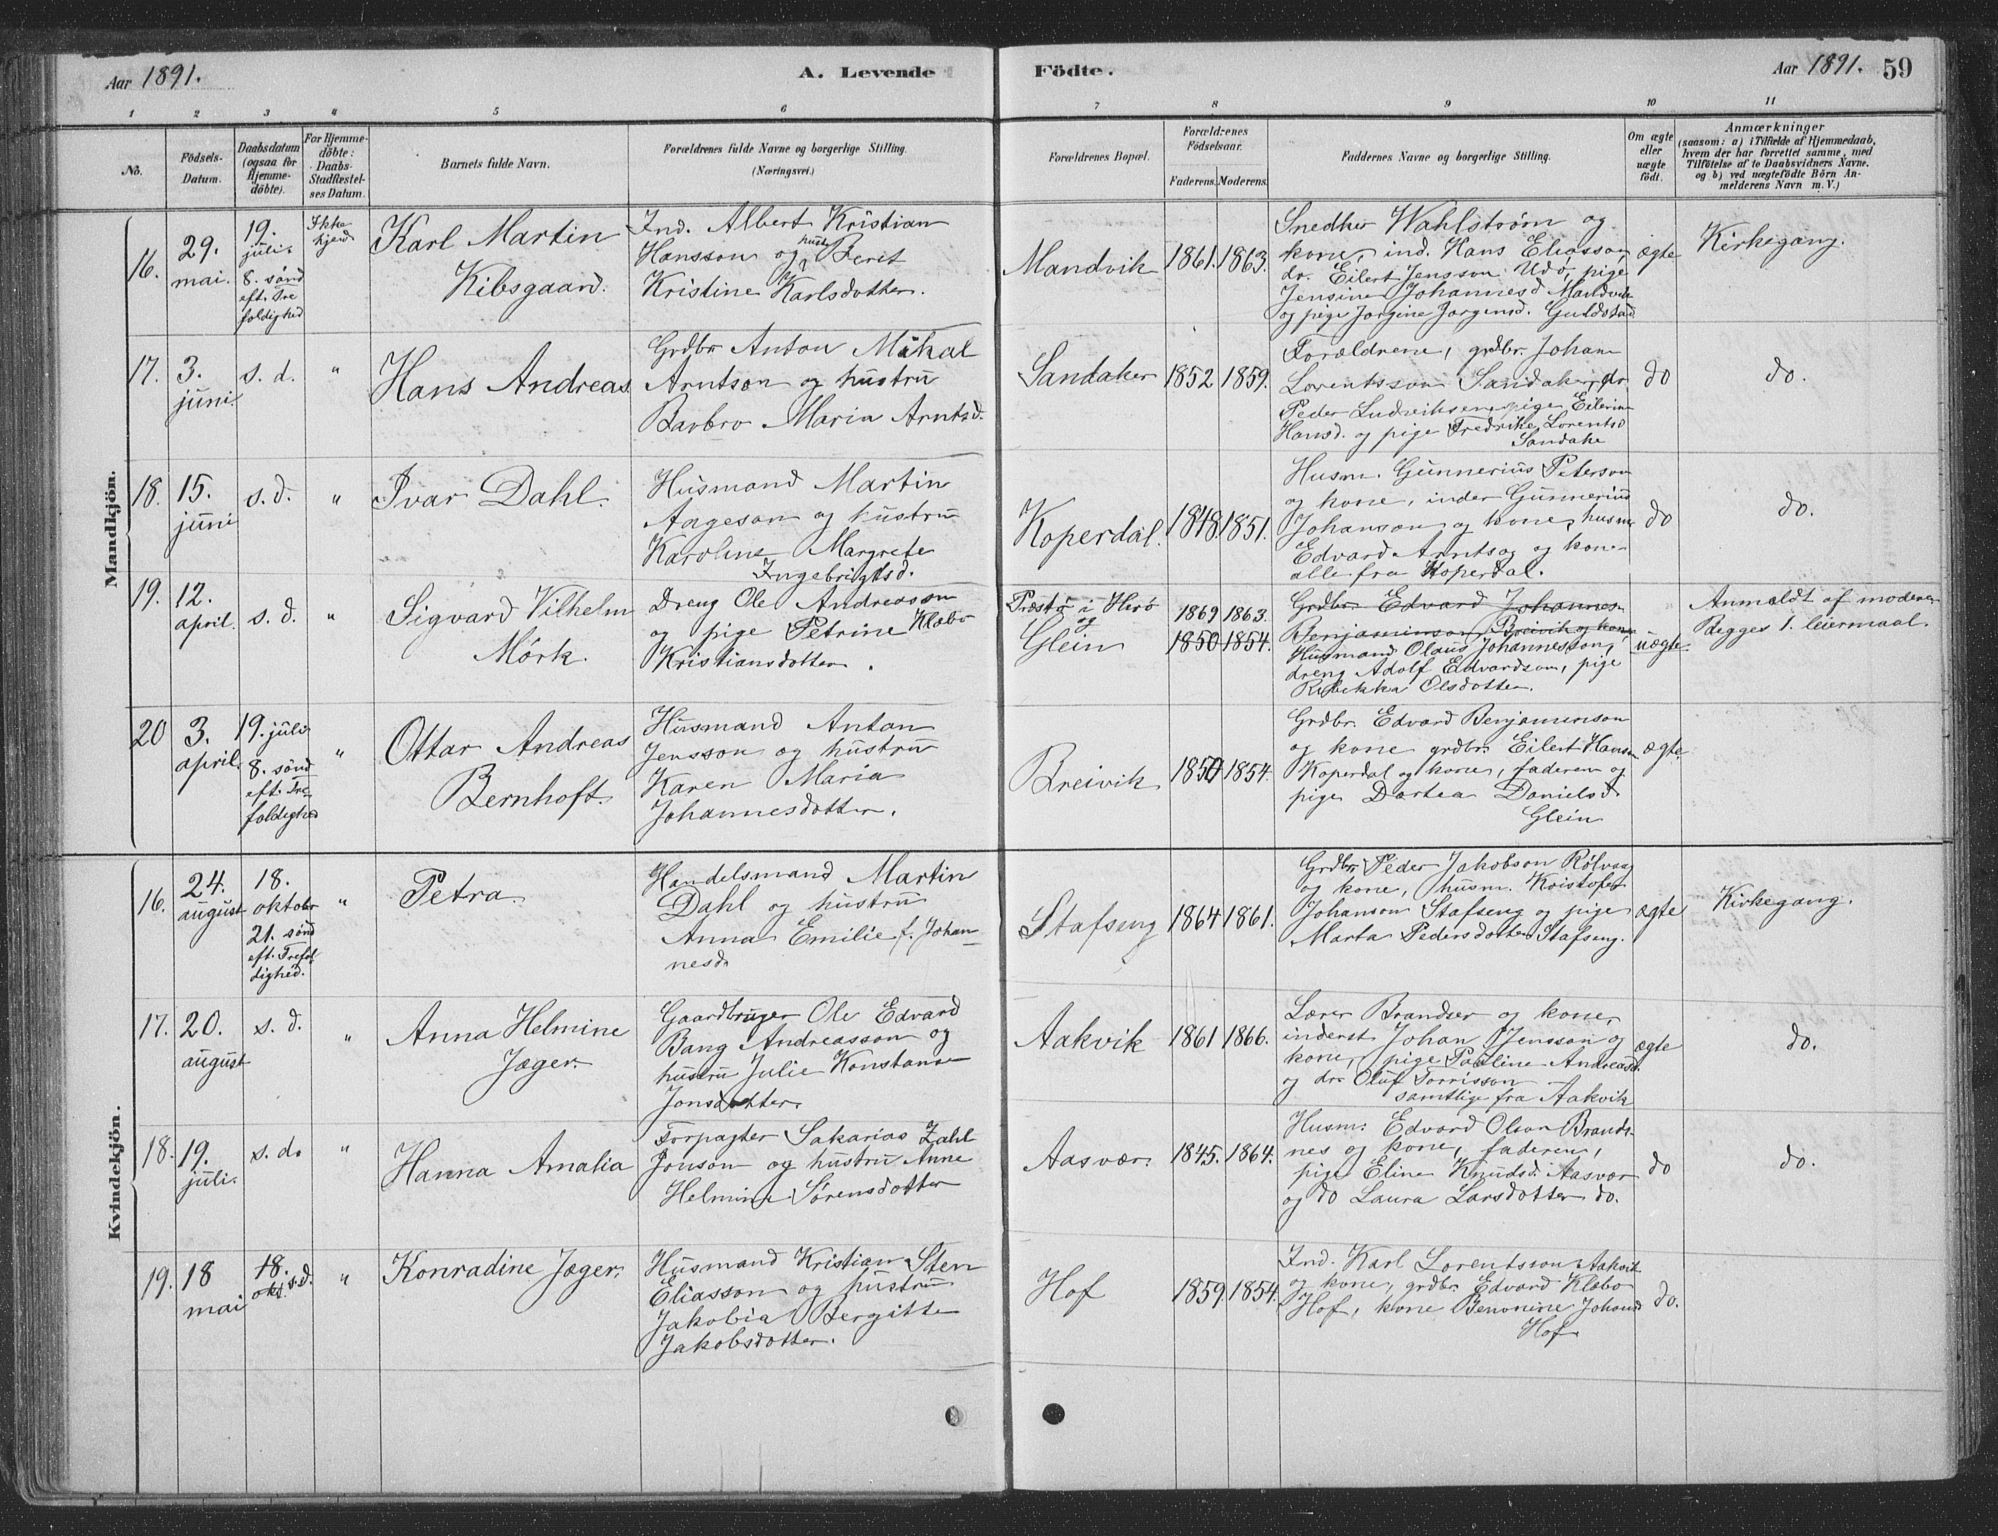 Aar 1891.
A. Levende
Födte.
Aar 1891. 59
1 2 3 4 5 6 7 8 9 10 11
No.
Födsels-
Datum.
Daabsdatum
(ogsaa for
Hjemme-
döbte).
For Hjemme-
döbte:
Daabs-
Stadfestel-
ses Datum.
Barnets fulde Navn.
Forældrenes fulde Navne og borgerlige Stilling.
(Næringsvei.)
Forældrenes Bopæl.
Forældrenes
Födselsaar.
Faderens. Moderens.
Faddernes Navne og borgerlige Stilling.
Om ægte
eller
uægte
födt.
Anmærkninger
(saasom: a) i Tilfælde af Hjemmedaab,
hvem der har forrettet samme, med
Tilföielse af to Daabsvidners Navne.
og b) ved uægtefödte Börn An-
melderens Navn m. V.)
Mandkjön.
16.
29.
mai.
19.
juli.
8. sönd
eft. Tre
foldighed
Ikke
kjend
Karl Martin
Kibsgaard.
Ind. Albert Kristian
Hansson og hustr Berit
Kristine Karlsdotter.
Mandvik
1861. 1863.
Snedker Wahlström og
kone, ind. Hans Eliasson,
dr. Eilert Jensson Udö, pige
Jensine Johannesd Mandvik
og pige Jorgine Jorgensd. Guldstad
ægte
Kirkegang.
17.
3.
juni.
s. d.
"
Hans Andreas
Grdbr Anton Mikal
Arntson og hustru
Barbro Maria Arntsd.
Sandaker
1852 1859.
Forældrene, grdbr. Johan
Lorentsson Sandaker, dr.
Peder Ludviksen pige Eilerine
Hansd. og pige Fredrike Lorentsd
Sandake
do
do.
18.
15.
juni
s. d.
"
Ivar Dahl.
Husmand Martin
Aageson og hustru
Karoline Margrete
Ingebrigtsd.
Koperdal.
1848. 1851.
Husm. Gunnerius Peterson
og kone, inder Gunnerius
Johanson og kone, husm
Edvard Arntsog og kone
alle fra Koperdal.
do
do.
19.
12.
april.
s. d.
"
Sigvard Vilhelm
Mörk.
Dreng Ole Andreasson
og pige Petrine Klæbo
Kristiansdotter.
Præstö i Herö
og
Glein
1869 1863.
1850 1854.
Grdbr. Edvard Johannes
Benjaminson Breivik og kone
Husmand Olaus Johannesson,
dreng Adolf Edvardson, pige
Rebekka Olsdotter.
uægte
Anmeldt af moderen
Begges 1. leiermaal.
20
3.
april.
19. juli
8. sönd
eft. Tre
foldighed
"
Ottar Andreas
Bernhoft.
Husmand Anton
Jensson og hustru
Karen Maria
Johannesdotter.
Breivik
1850 1854.
Grdbr. Edvard Benjaminson
og kone grdbr. Eilert Hansen
Koperdal og kone, faderen og
pige Dortea Danielsd.
Glein
ægte.
Kvindekjön.
16.
24.
august
18.
oktober
21. sönd
eft. Trefol
dighed.
"
Petra.
Handelsmand Martin
Dahl og hustru
Anna Emilie f. Johan-
nesd.
Stafseng
1864 1861.
Grdbr. Peder Jakobson Rölvaag
og kone, husm. Kristofer
Johanson Stafseng og pige
Marta Pedersdotter Stafseng.
ægte
Kirkegang.
17.
20.
august
s. d.
"
Anna Helmine
Jæger.
Gaardbruger Ole Edvard
Bang Andreasson og
hustru Julie Konstanse
Jonsdotter.
Aakvik
1861 1866.
Lærer Brandser og kone,
inderst Johan Jensson og
kone, pige Pauline Andreasd.
og dr. Oluf Torrisson
samtlige fra Aakvik
ægte
do.
18.
19.
juli.
s. d.
"
Hanna Amalia
Forpagter Sakarias Zahl
Jonson og hustru Anne
Helmine Sörensdotter
Aasvær.
1845. 1864.
Husm. Edvard Olson Brands-
nes og kone, faderen,
pige Eline Knudsd. Aasvær
og do Laura Larsdotter do.
do
do.
19.
18
mai
18.
okt. s.d.
"
Konradine Jæger.
Husmand Kristian Sten
Eliasson og hustru
Jakobia Bergitte
Jakobsdotter.
Hof
1859 1854.
Ind. Karl Lorentsson Aakvik
og kone, grdbr. Edvard Klæbo
Hof, kone Benonine Johansd
Hof.
do.